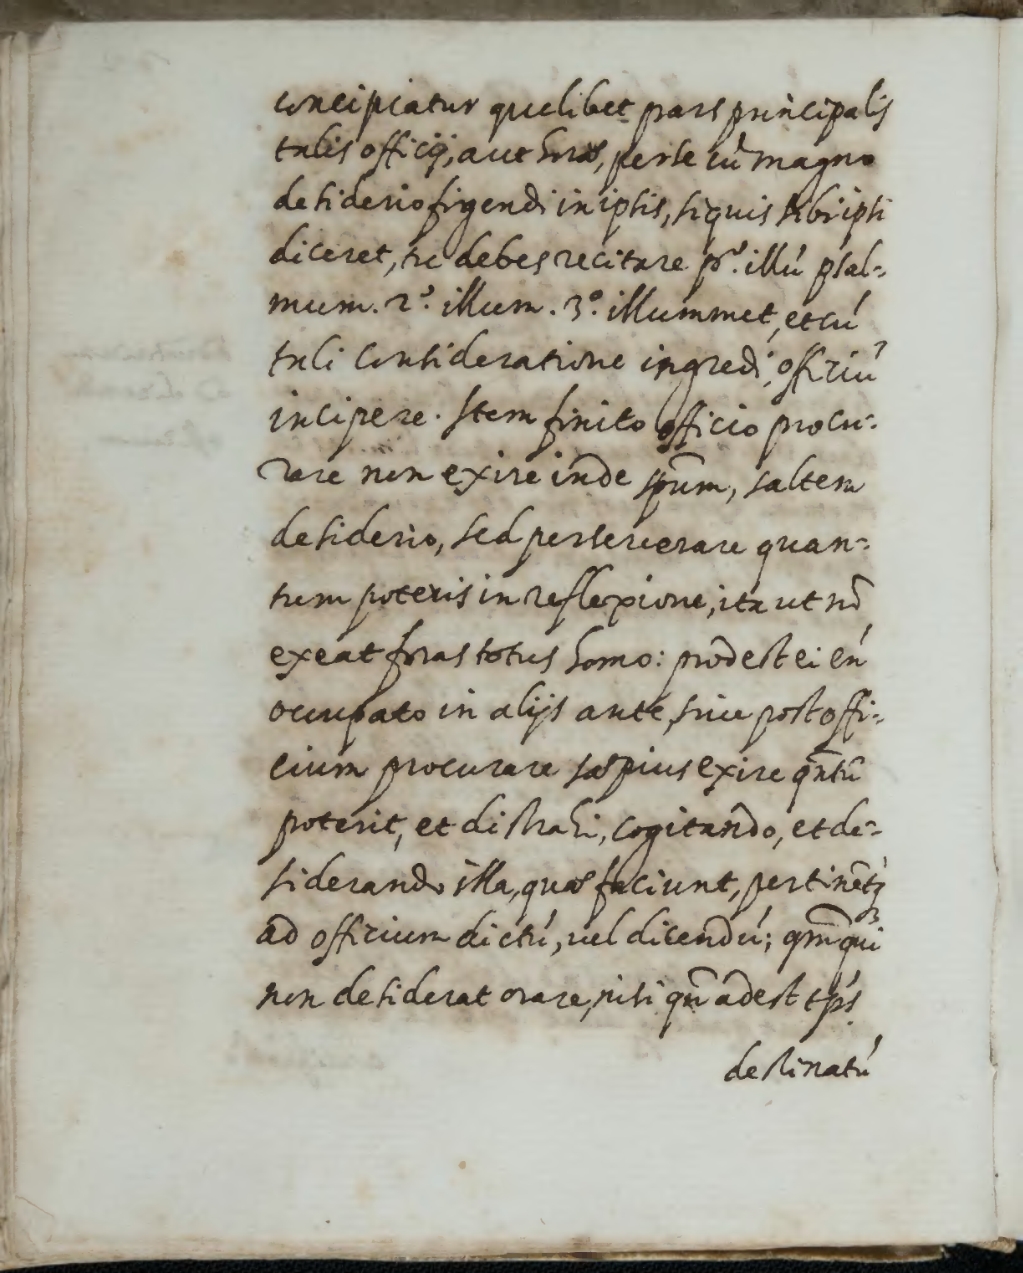 concipiatur quelibet pars principalis
talis officij, aut horæ, per se cū magno
desiderio figendi in ipsis, si quis sibi ipsi
diceret, tu debes recitare p.º illú psal-
mum. 2.º illum. 3.º illummet, et cú
tali consideratione ingredi, officiú
incipere. Item finito officio procu-
rare non exire inde spūm, saltem
desiderio, sed perseverare quan-
tum poteris in reflexione, ita ut nō
exeat foras totus homo: prodest ei en̄
occupato in alijs ante, sive post offi-
cium procurare sæpius exire qn̄tū
poterit, et distrahi, cogitando, et de-
siderando illa, quæ faciunt, pertinētq3
ad officium dictú, vel dicendú; qm̄ qui
non desiderat orare, nisi qn̄ adest tp̄s
destinatú